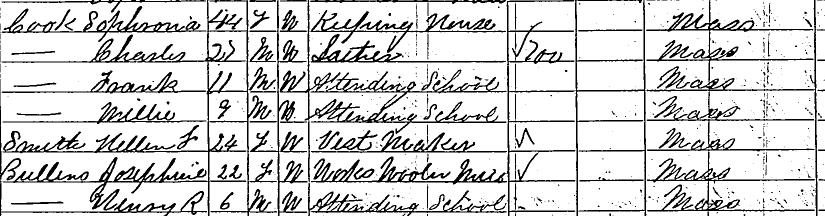 Cook Sophronia 44 F W Keeping House Mass
— Charles 27 M W 700 Mass
— Frank 11 M W Attending School Mass
— Millie 9 M W Attending School Mass
Smith Hellen F 24 F W Vest Maker Mass
Bullens Josephine 22 F W Works Woolen Mill Mass
— Henry R 6 M W Attending School Mass